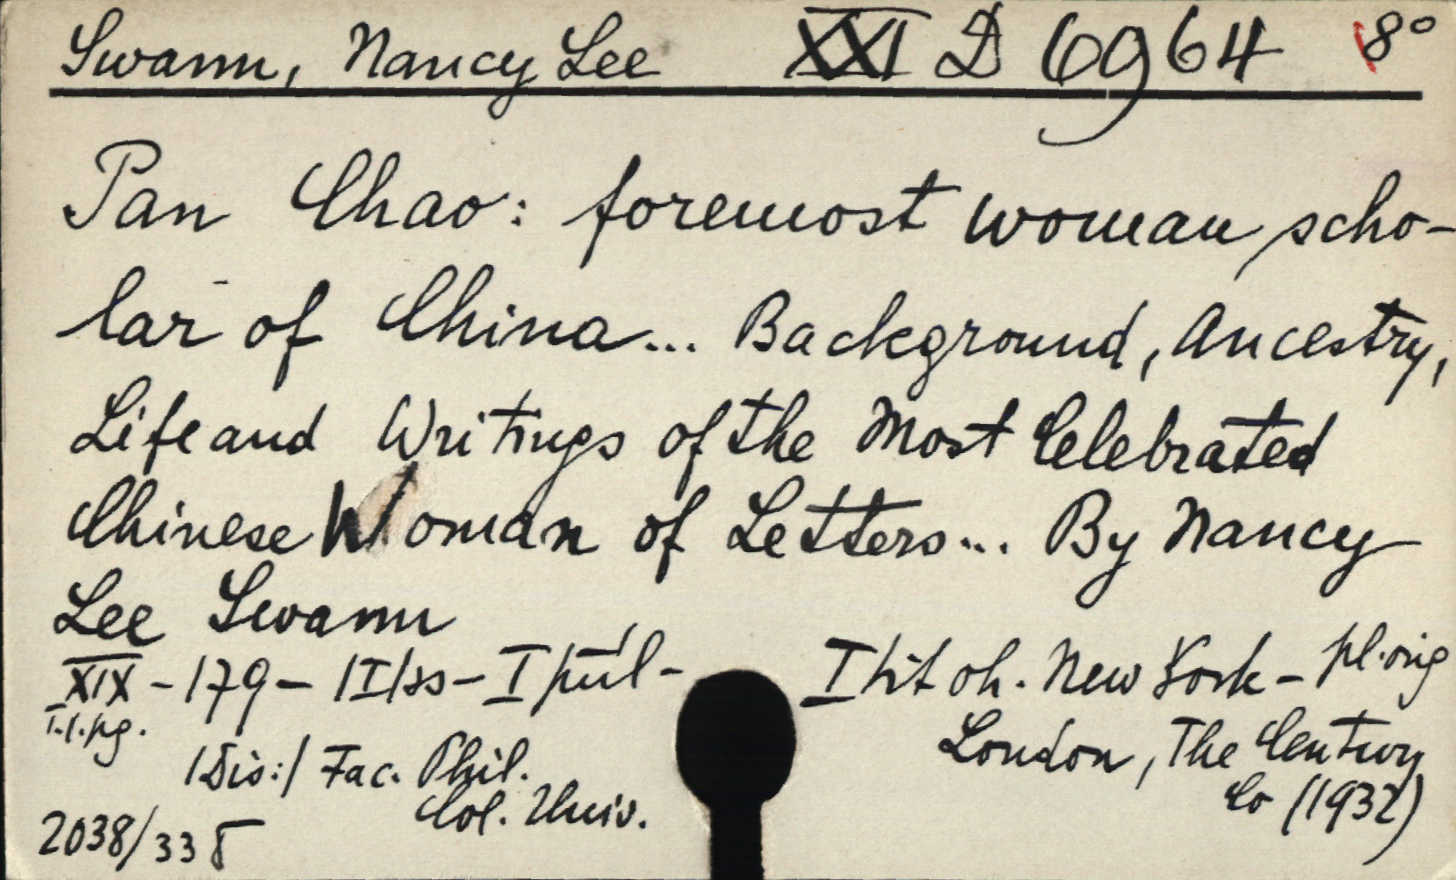 Swann, Nancy Lee XXI D 6964 8°
Pan Chao: foremost woman scho-
lar of China... Background, Ancestry,
Life and Writings of the Most Celebrated
Chinese Woman of Letters... By Nancy
Lee Swann
XIX - 179 - 1 I/ss - I púl - I tit oh. New York - pl. orig
T.l.pg. London, The Century
/Dis:/ Fac. Phil. Co (1932)
Col. Univ.
2038/33